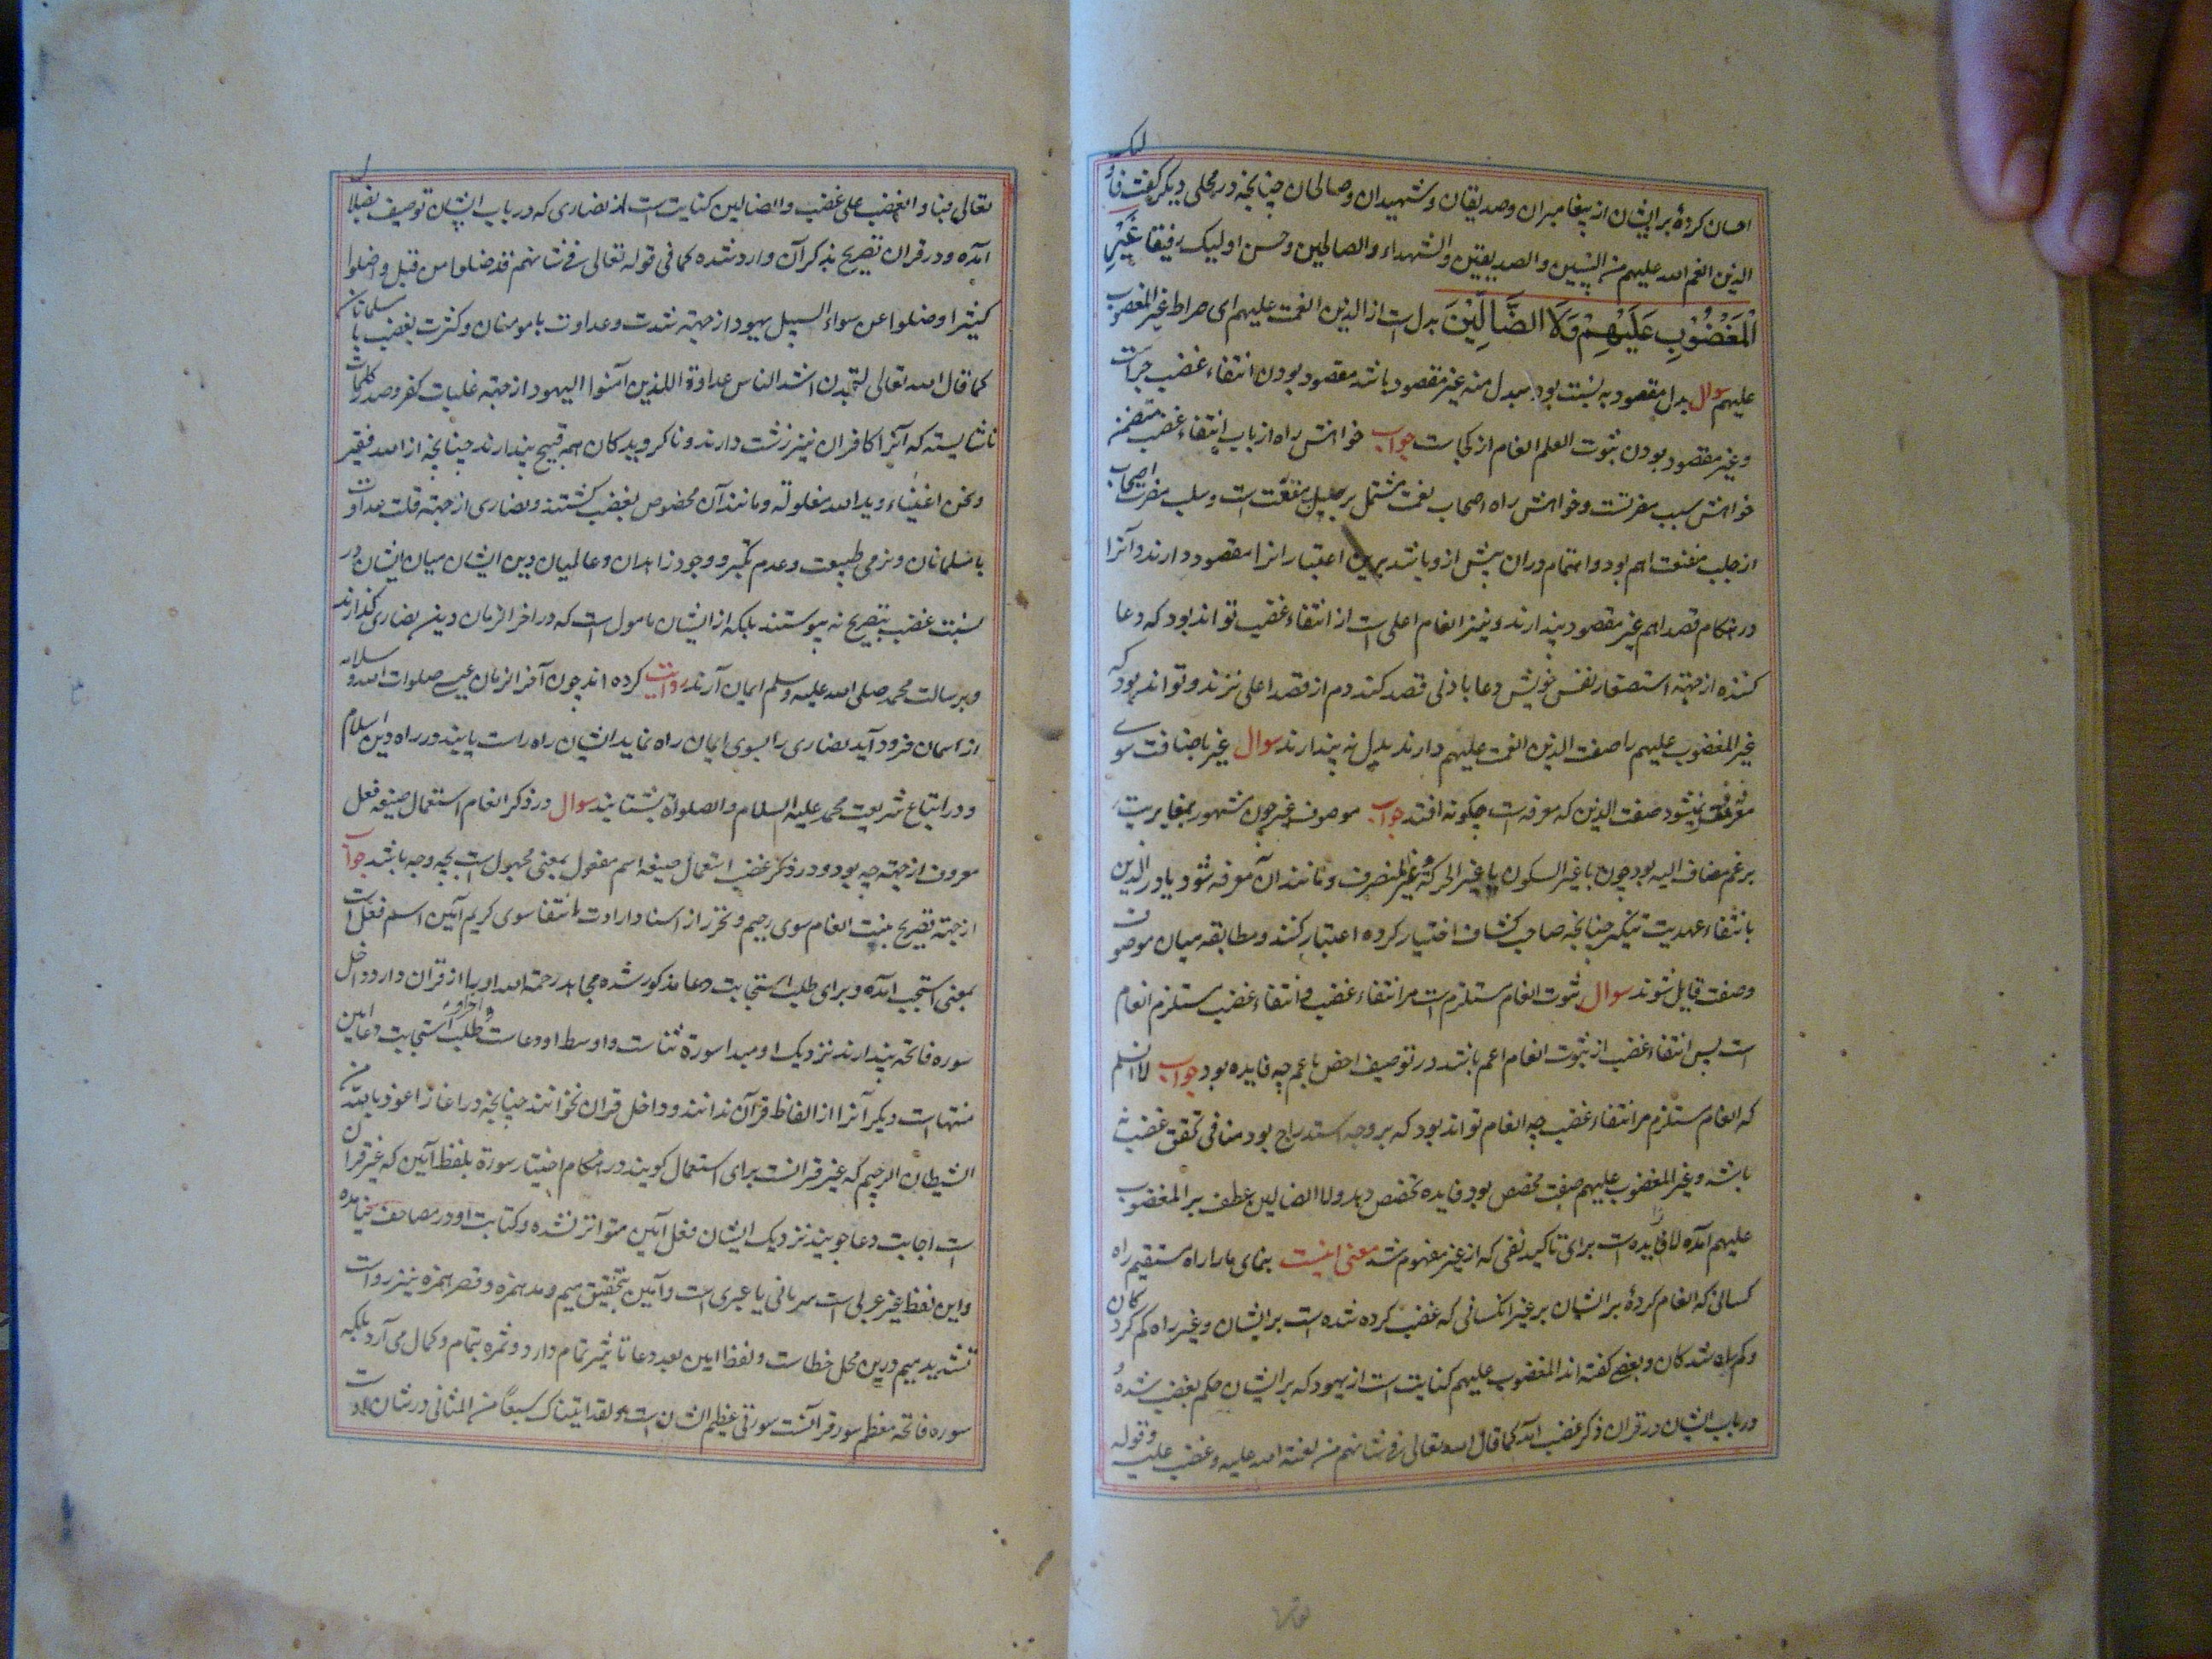 احسان کردهٔ بر ایشان از پیغامبران و صدیقان و شهیدان و صالحان چنانچه در محلی دیگر گفت فاو
لیک
الذین انعم الله علیهم من النبیین و الصدیقین و الشهداء و الصالحین و حسن اولیک رفیقا غَیْرِ
الْمَغْضُوْبِ عَلَیْهِمْ وَلَا الضَّالِّیْنَ بدل است از الذین انعمت علیهم ای صراط غیر المغضوب
علیهم سوال بدل مقصود به نسبت بود مبدل منه غیر مقصود باشد مقصود بودن انتفاء غضب
و غیر مقصود بودن ثبوت انعام از کجاست جواب خواهش راه از باب انتفاء غضب متضمن
خواهش سبب مضرتست و خواهش راه اصحاب نعمت مشتمل بر منفعت است و سلب مضرت
از جلب منفعت اهم بود و اهتمام دران بیش ازو باشد برین اعتبار انرا مقصود دارند و آنرا
در هنگام قصد اهم غیر مقصود پندارند و نیز انعام اعلی است از انتفاء غضب تواند بود که دعا
کننده از جهته استصغار نفس خویش دعا بادنی قصد کند دم از قصد اعلی نزند و تواند بود که
غیر المغضوب علیهم را صفت الذین انعمت علیهم دارند بدل نه پندارند سوال غیر باضافت سوی
معرفه معرفه نمیشود صفت الذین که معرفه است چگونه افتد جواب موصوف غیر چون مشهور بمغایریت
برغم مضاف الیه بود چون با غیر السکون یا غیر الحرکة و غیر المنصرف و مانند آن معرفه شود یا در الذین
بانتفاء عهدیت تنکیر چنانچه صاحب کشاف اختیار کرده اعتبار کنند و مطابقه میان موصوف
و صفت قایل شوند سوال ثبوت انعام مستلزم است مر انتفاء غضب و انتفاء غضب مستلزم انعام
است پس انتفاء غضب از ثبوت انعام اعم باشد در توصیف اخص باعم چه فایده بود جواب لا نسلم
که انعام مستلزم مر انتفاء غضب چه انعام تواند بود که بر وجه استدراج بود منافی تحقق غضب
باشد و غیر المغضوب علیهم صفت مخصص بود فایده تخصص دهد ولا الضالین عطف بر المغضوب
علیهم آمده لا زایده است برای تاکید نفی که از غیر مفهوم شد معنی اینست بنمای ما را راه مستقیم راه
کسانی که انعام کردهٔ بر ایشان بر غیر انکسانی که غضب کرده شده است بر ایشان و غیر راه گم کردکان
و گم راه شدکان و بعضی گفته اند المغضوب علیهم کنایت است از یهود که بر ایشان حکم بغضب شده و
در باب ایشان در قران ذکر غضب آمد کما قال الله تعالی فی شانهم من لعنه الله علیه و غضب علیه و قوله
تعالی فباو الغضب علی غضب و الضالین کنایت است از نصاری که در باب ایشان توصیف بضلال
آمده و در قران تصریح بذکر آن وارد شده کما فی قوله تعالی فی شانهم قد ضلوا من قبل و اضلوا
کثیرا و ضلوا عن سواء السبیل یهود از جهته شدت و عداوت با مومنان و کثرت بغضب با مسلمانان
کما قال الله تعالی لتجدن اشد الناس عداوة للذین آمنوا الیهود از جهته غلبات کفر و صدور کلمات
ناشایسته که آنرا کافران نیز زشت دارند و ناکرویدکان هم قبیح پندارند چنانچه از الله فقیر
و نحن اغنیاء و ید الله مغلولة و مانند آن مخصوص بغضب کشتند و نصاری از جهته قلت عداوت
با مسلمانان و نرمی طبیعت و عدم تکبر و وجود زاهدان و عالمیان دین ایشان میان ایشان در
نسبت غضب بتصریح نه پیوستند بلکه از ایشان مامول است که در اخر الزمان دین نصاری کذارند
و برسالت محمد صلی الله علیه و سلم ایمان آرند روایت کرده اند چون آخر الزمان عیسی صلوات الله و سلامه
از اسمان فرود آید نصاری را بسوی ایمان راه نماید ایشان راه راست یابند و در راه دین اسلام
و در اتباع شریعت محمد علیه السلام و الصلواة بشتابند سوال در ذکر انعام استعمال صیغه فعل
معروف از جهته چه بود و در ذکر غضب استعمال صیغه اسم مفعول بمعنی مجهول است بچه وجه باشد جواب
از جهته تصریح نسبت انعام سوی رحیم و تحرز از اسناد ارادت انتقام سوی کریم آمین اسم فعل است
بمعنی استجب آمده و برای طلب استجابت دعا مذکور شده مجاهد رحمة الله او را از قران دارد و داخل
سوره فاتحه پندارند نزدیک او مبدا سورة ثناست و اوسط او دعاست و اخر او طلب استجابت دعا امین
منتهاست دیگر آنرا از الفاظ قرآن ندانند و داخل قران نخوانند چنانچه در اغاز اعوذ بالله من
الشیطان الرجیم که غیر قرانست برای استعمال کویند در هنگام اختیار سورة بلفظ آمین که غیر قران
است اجابت دعا جویند نزدیک ایشان فعل آمین متواتر نشده و کتابت او در مصاحف نیامده
و این لفظ غیر عربی است سریانی یا عبری است و آمین بتخفیف میم و مد همزه و قصر همزه نیز رواست
تشدید میم درین محل خطاست و لفظ امین بعد دعا تاثیر تمام دارد و ثمره بتمام و کمال می آرد بلکه
سوره فاتحه معظم سور قرآنست سورتی عظیم الشان است و لقد اتیناک سبعاً من المثانی در شان اوست